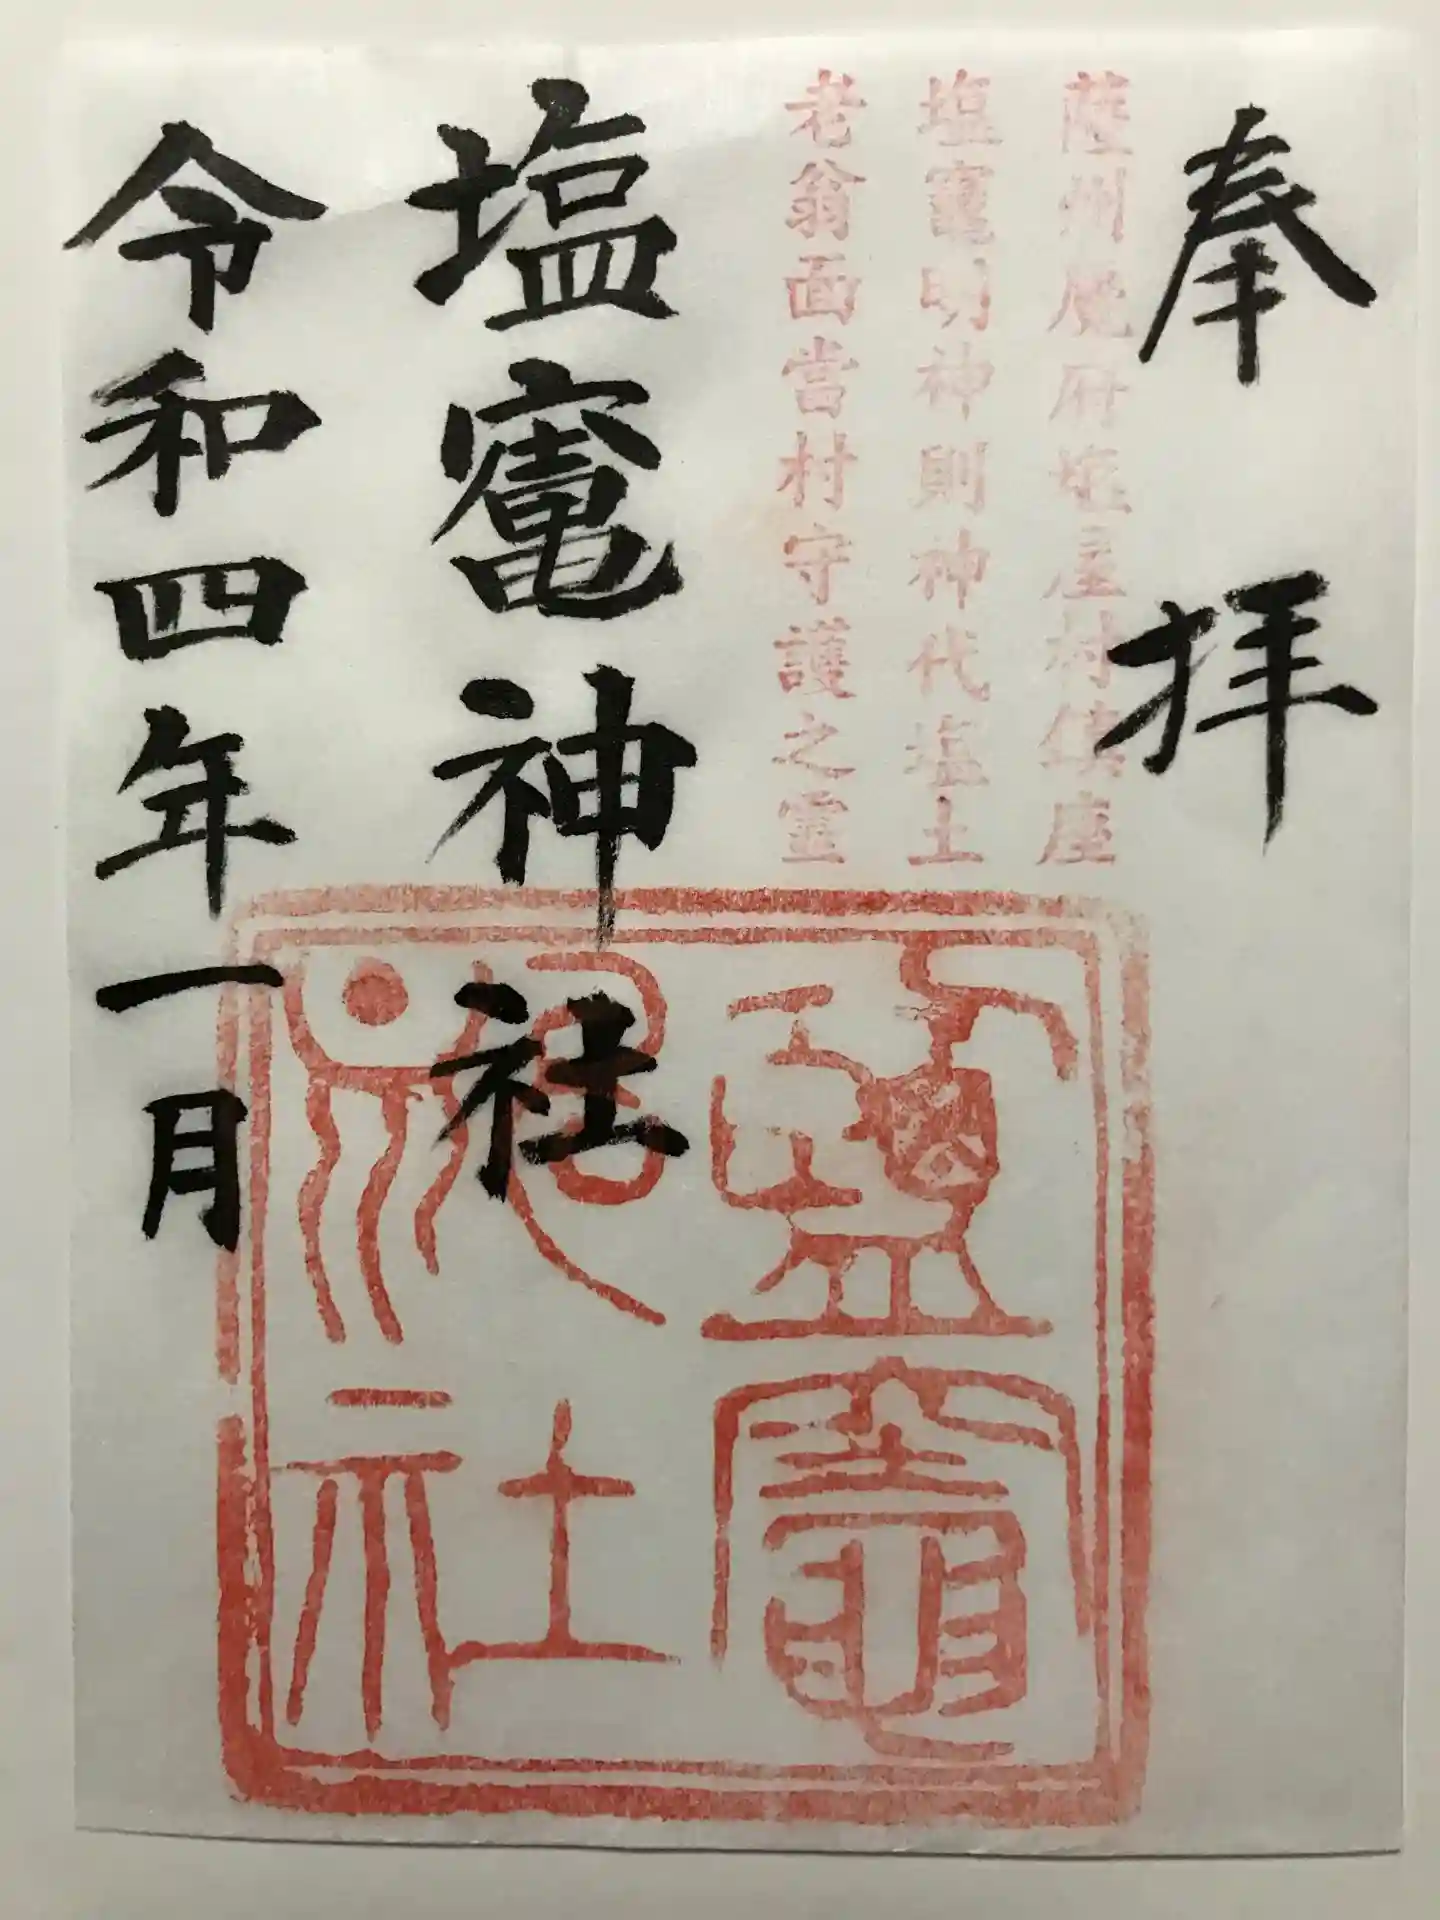 奉拝
薩州麑府塩屋村鎮座
塩竃明神則神代塩土
老翁面當村守護之霊
塩竈神社
令和四年一月
塩竈
神社